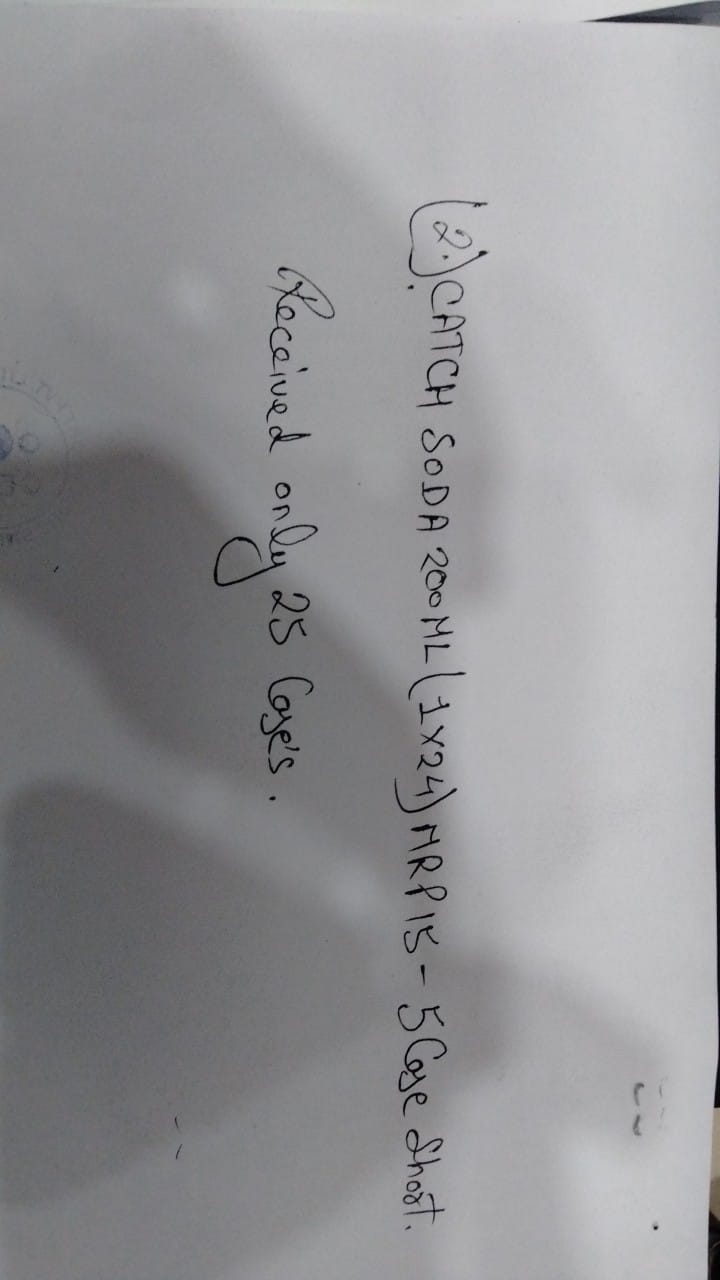 (2.) CATCH SODA 200ML (1X24) MRP 15 - 5 Case Short.
Received only 25 Case's.